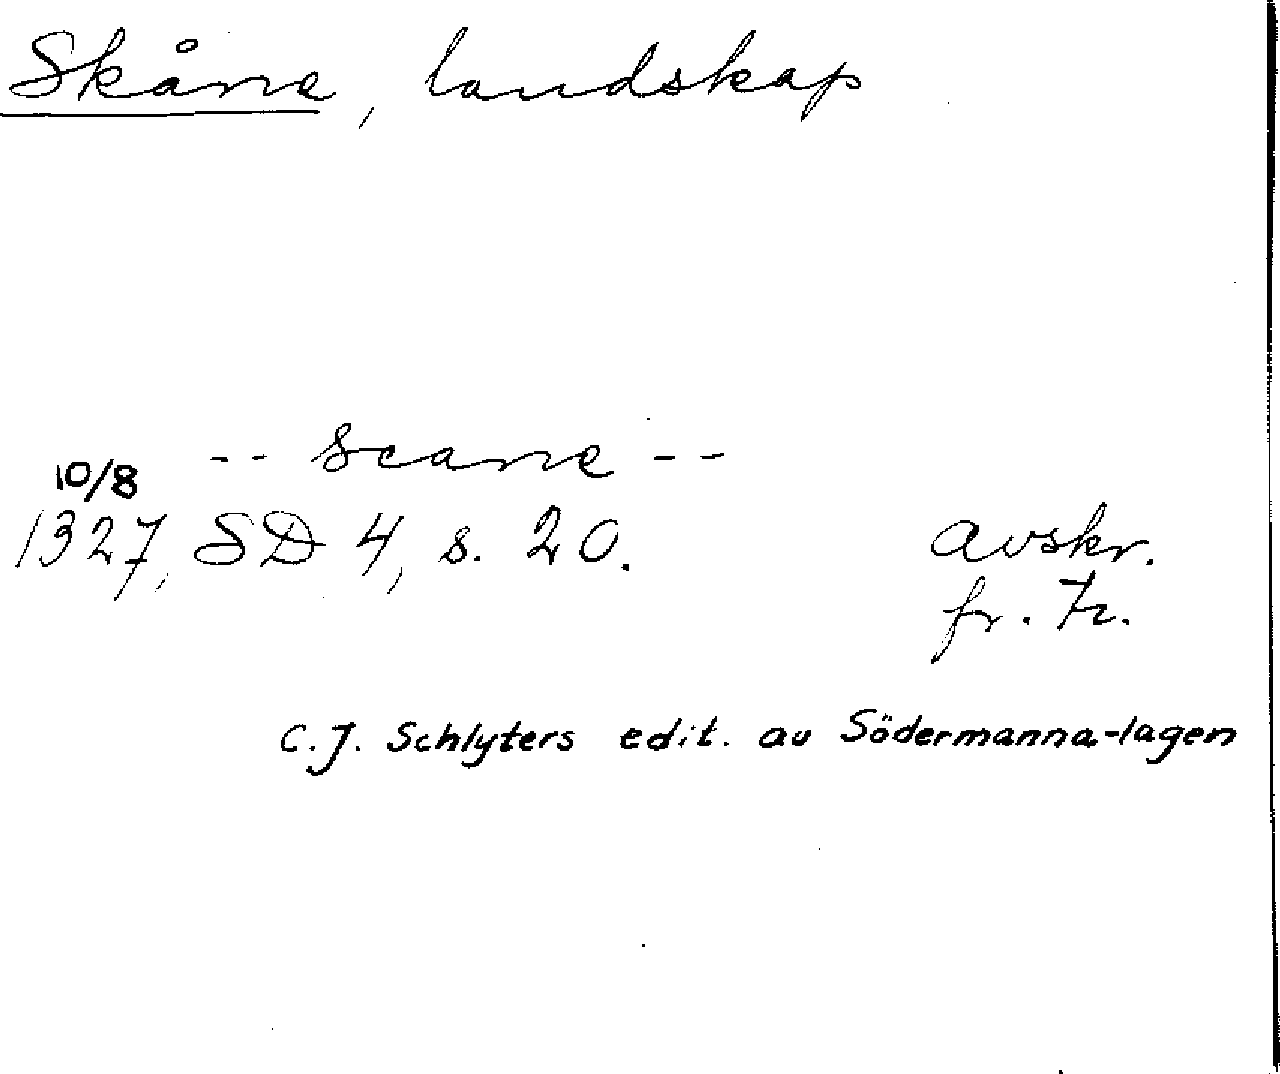 Skåne, landskap
-- scane --
10/8
1327, SD 4, s. 20.
avskr.
fr. Tr.
C.J. Schlyters edit. av Södermanna-lagen